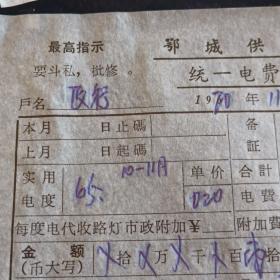 最高指示
要斗私，批修。
鄂城供
统一电费
户名 政智 1970年11
本月 日止碼 备
上月 日起碼 証
实用 10-11月 单价 合計
电度 65. 020 电費
每度电代收路灯市政附加￥ 附加費
金額
(币大写) 拾 万 千 百 拾